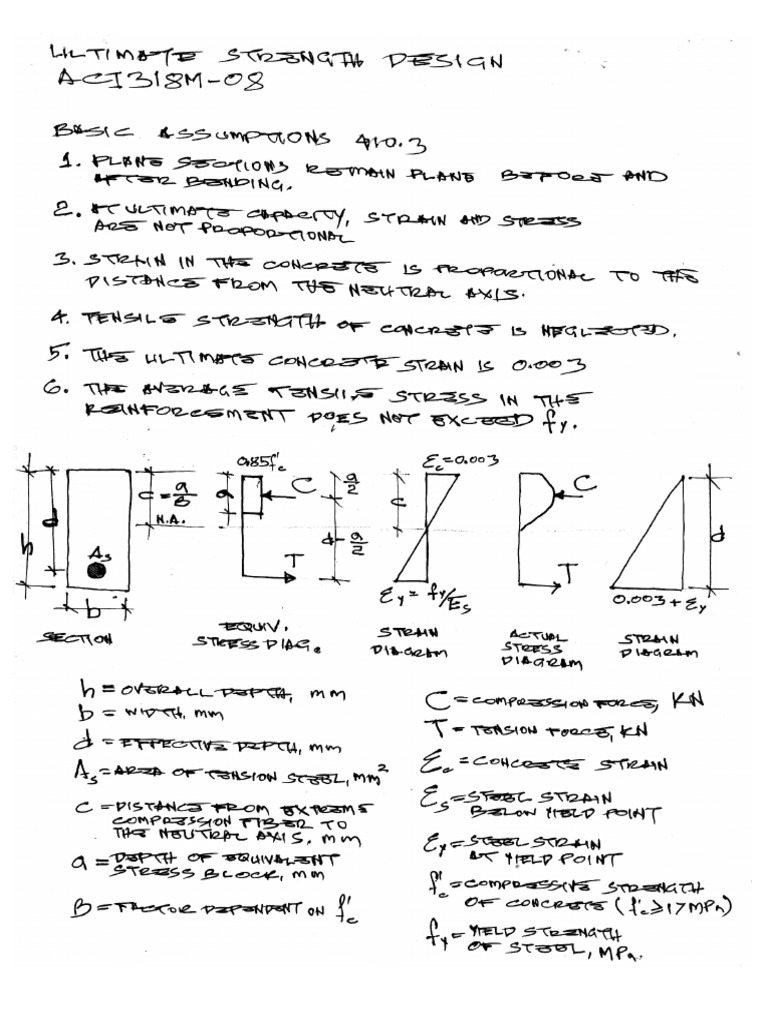 ULTIMATE STRENGTH DESIGN
ACI318M-08
BASIC ASSUMPTIONS 410.3
1. PLANE SECTIONS REMAIN PLANE BEFORE AND
AFTER BENDING.
2. AT ULTIMATE CAPACITY, STRAIN AND STRESS
ARE NOT PROPORTIONAL
3. STRAIN IN THE CONCRETE IS PROPORTIONAL TO THE
DISTANCE FROM THE NEUTRAL AXIS.
4. TENSILE STRENGTH OF CONCRETE IS NEGLECTED.
5. THE ULTIMATE CONCRETE STRAIN IS 0.003
6. THE AVERAGE TENSILE STRESS IN THE
REINFORCEMENT DOES NOT EXCEED fy.
h
d
As
b
c = a/B
N.A.
SECTION
0.85f'c
a
C
T
a/2
d - a/2
EQUIV.
STRESS DIAG.
Ɛc = 0.003
c
Ɛy = fy/Es
STRAIN
DIAGRAM
C
T
ACTUAL
STRESS
DIAGRAM
d
0.003 + Ɛy
STRAIN
DIAGRAM
h = OVERALL DEPTH, mm
b = WIDTH, mm
d = EFFECTIVE DEPTH, mm
As = AREA OF TENSION STEEL, mm²
c = DISTANCE FROM EXTREME
COMPRESSION FIBER TO
THE NEUTRAL AXIS, mm
a = DEPTH OF EQUIVALENT
STRESS BLOCK, mm
B = FACTOR DEPENDENT ON f'c
C = COMPRESSION FORCE, KN
T = TENSION FORCE, KN
Ɛc = CONCRETE STRAIN
Ɛs = STEEL STRAIN
BELOW YIELD POINT
Ɛy = STEEL STRAIN
AT YIELD POINT
f'c = COMPRESSIVE STRENGTH
OF CONCRETE (f'c ≥ 17 MPa)
fy = YIELD STRENGTH
OF STEEL, MPa.